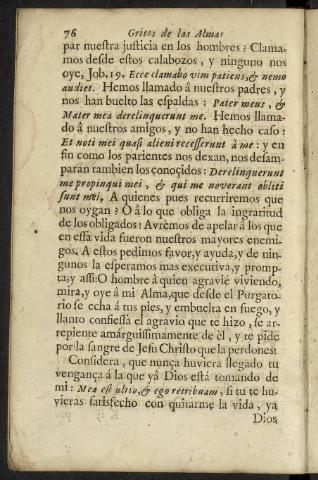 76 Gritos de las Almas
par nuestra justicia en los hombres? Clama-
mos desde estos calabozos, y ninguno nos
oye, Job. 19. Ecce clamabo vim patiens, & nemo
audiet. Hemos llamado â nuestros padres, y
nos han buelto las espaldas: Pater meus, &
Mater mea derelinquerunt me. Hemos llama-
do â nuestros amigos, y no han hecho caso:
Et noti mei quasi alieni recesserunt à me: y en
fin como los parientes nos dexan, nos desam-
paran tambien los conoçidos: Derelinquerunt
me propinqui mei, & qui me noverant obliti
sunt mei, A quienes pues recurriremos que
nos oygan? O â lo que obliga la ingratitud
de los obligados! Avrèmos de apelar â los que
en essa vida fueron nuestros mayores enemi-
gos. A estos pedimos favor, y ayuda, y de nin-
gunos la esperamos mas executiva, y promp-
ta, y assi: O hombre â quien agravié viviendo,
mira, y oye â mi Alma, que desde el Purgato-
rio se echa â tus pies, y embuelta en fuego, y
llanto confiessa el agravio que te hizo, se ar-
repiente amârguissimamente de èl, y te pide
por la sangre de Jesu Christo que la perdones:
Considera, que nunca huviera llegado tu
vengança â la que yâ Dios està tomando de
mi: Mea est ultio, & ego retribuam, si tu te hu-
vieras satisfecho con quitarme la vida, ya
Dios